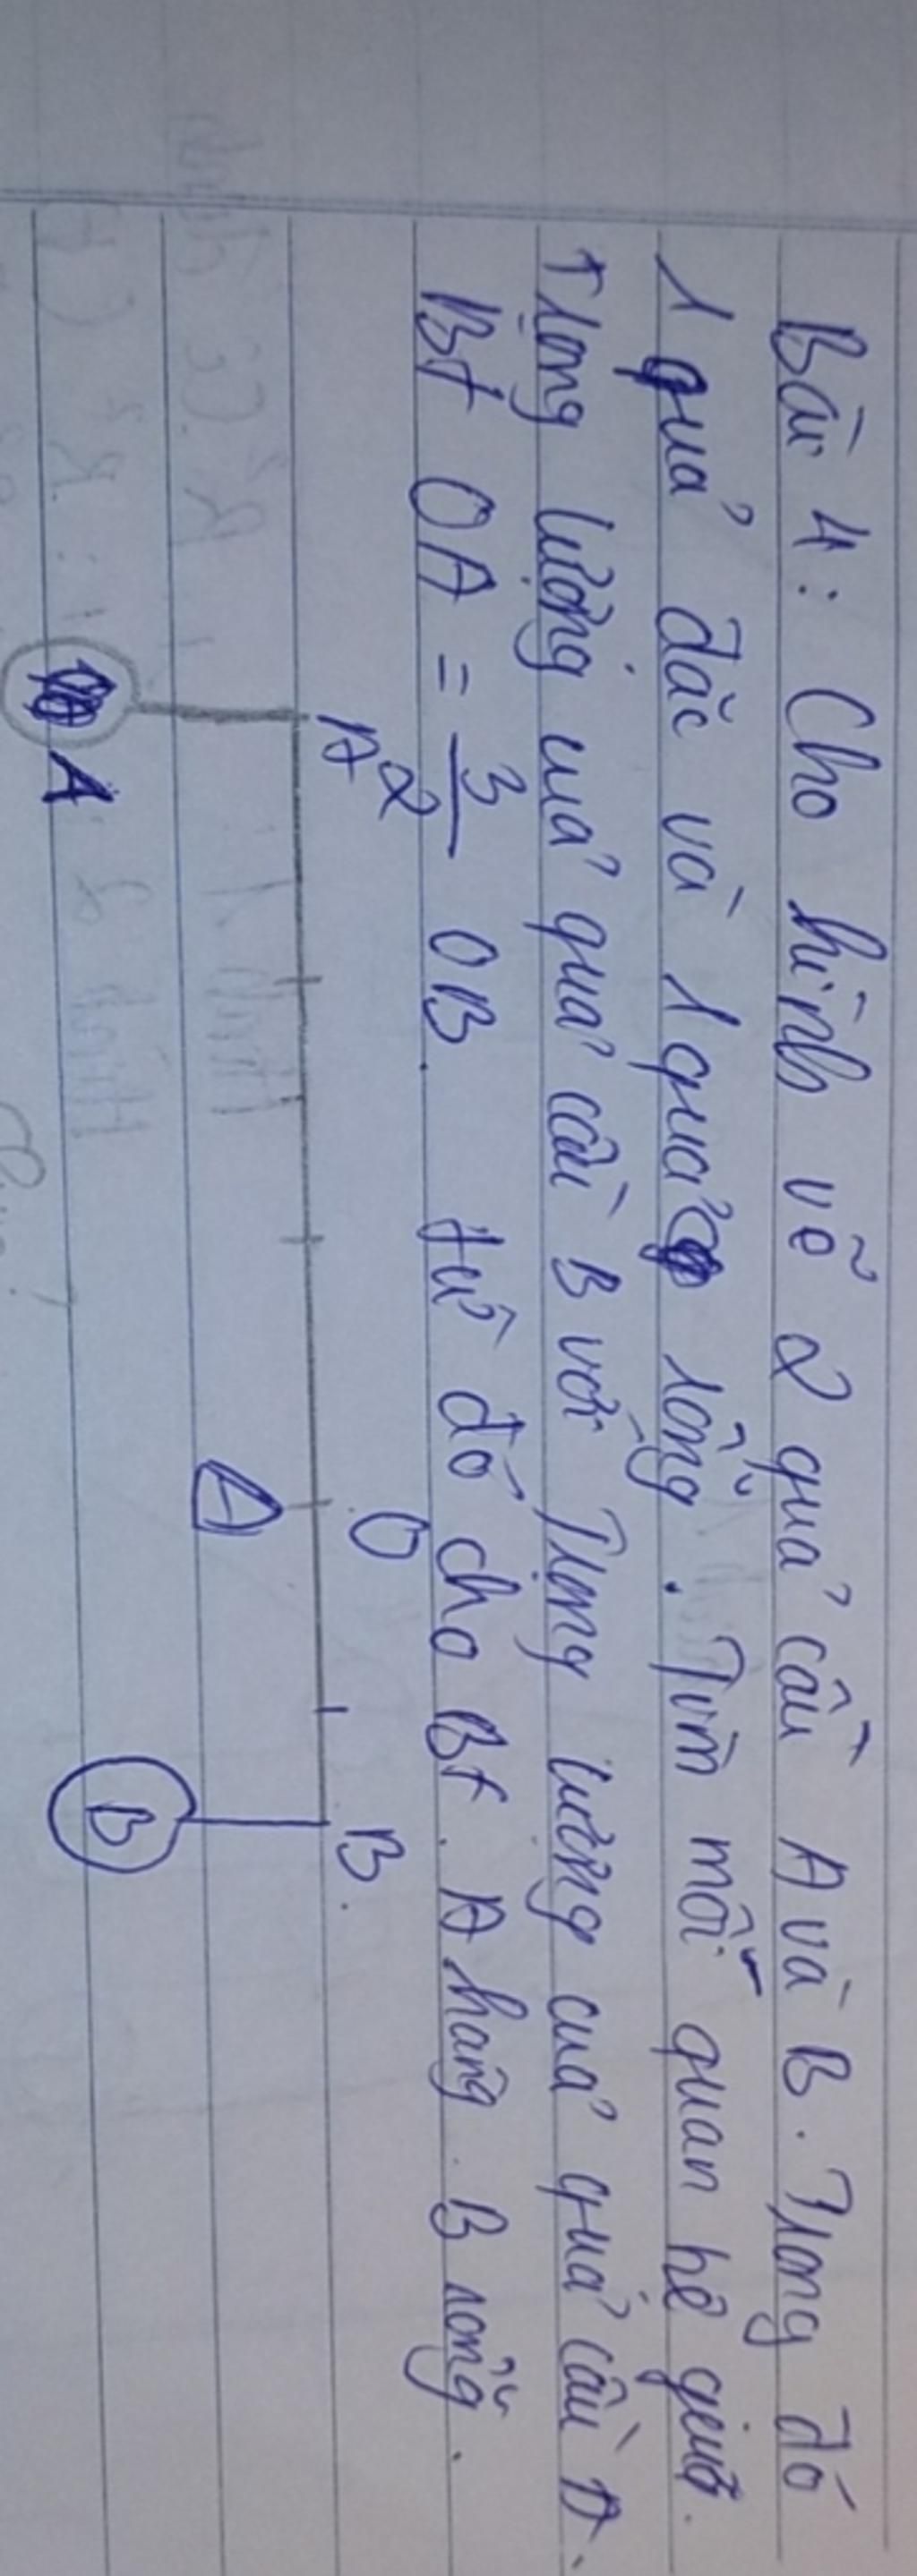 Bài 4: Cho hình vẽ 2 quả cầu A và B. Trong đó
1 quả đặc và 1 quả rỗng. Tìm mối quan hệ giữa
trọng lượng của quả cầu B với Trọng lượng của quả cầu A.
Bt OA = 3/2 OB. từ đó cho Bt. A hay B rỗng.
A O B.
A B